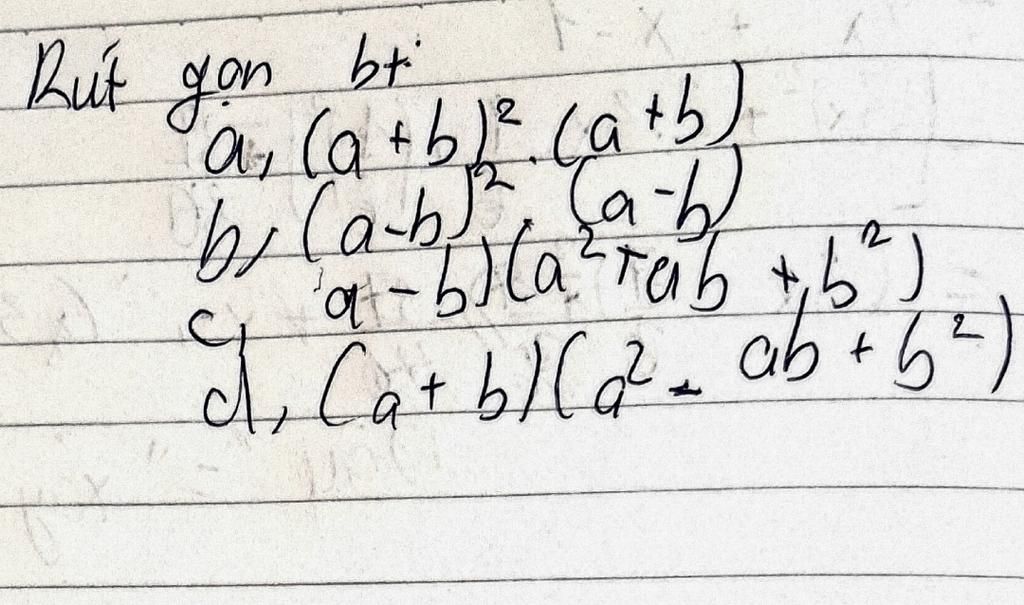 Rút gọn bt
a, (a+b)². (a+b)
b, (a-b)². (a-b)
c, a-b)(a²+ab+b²)
d, (a+b)(a²-ab+b²)